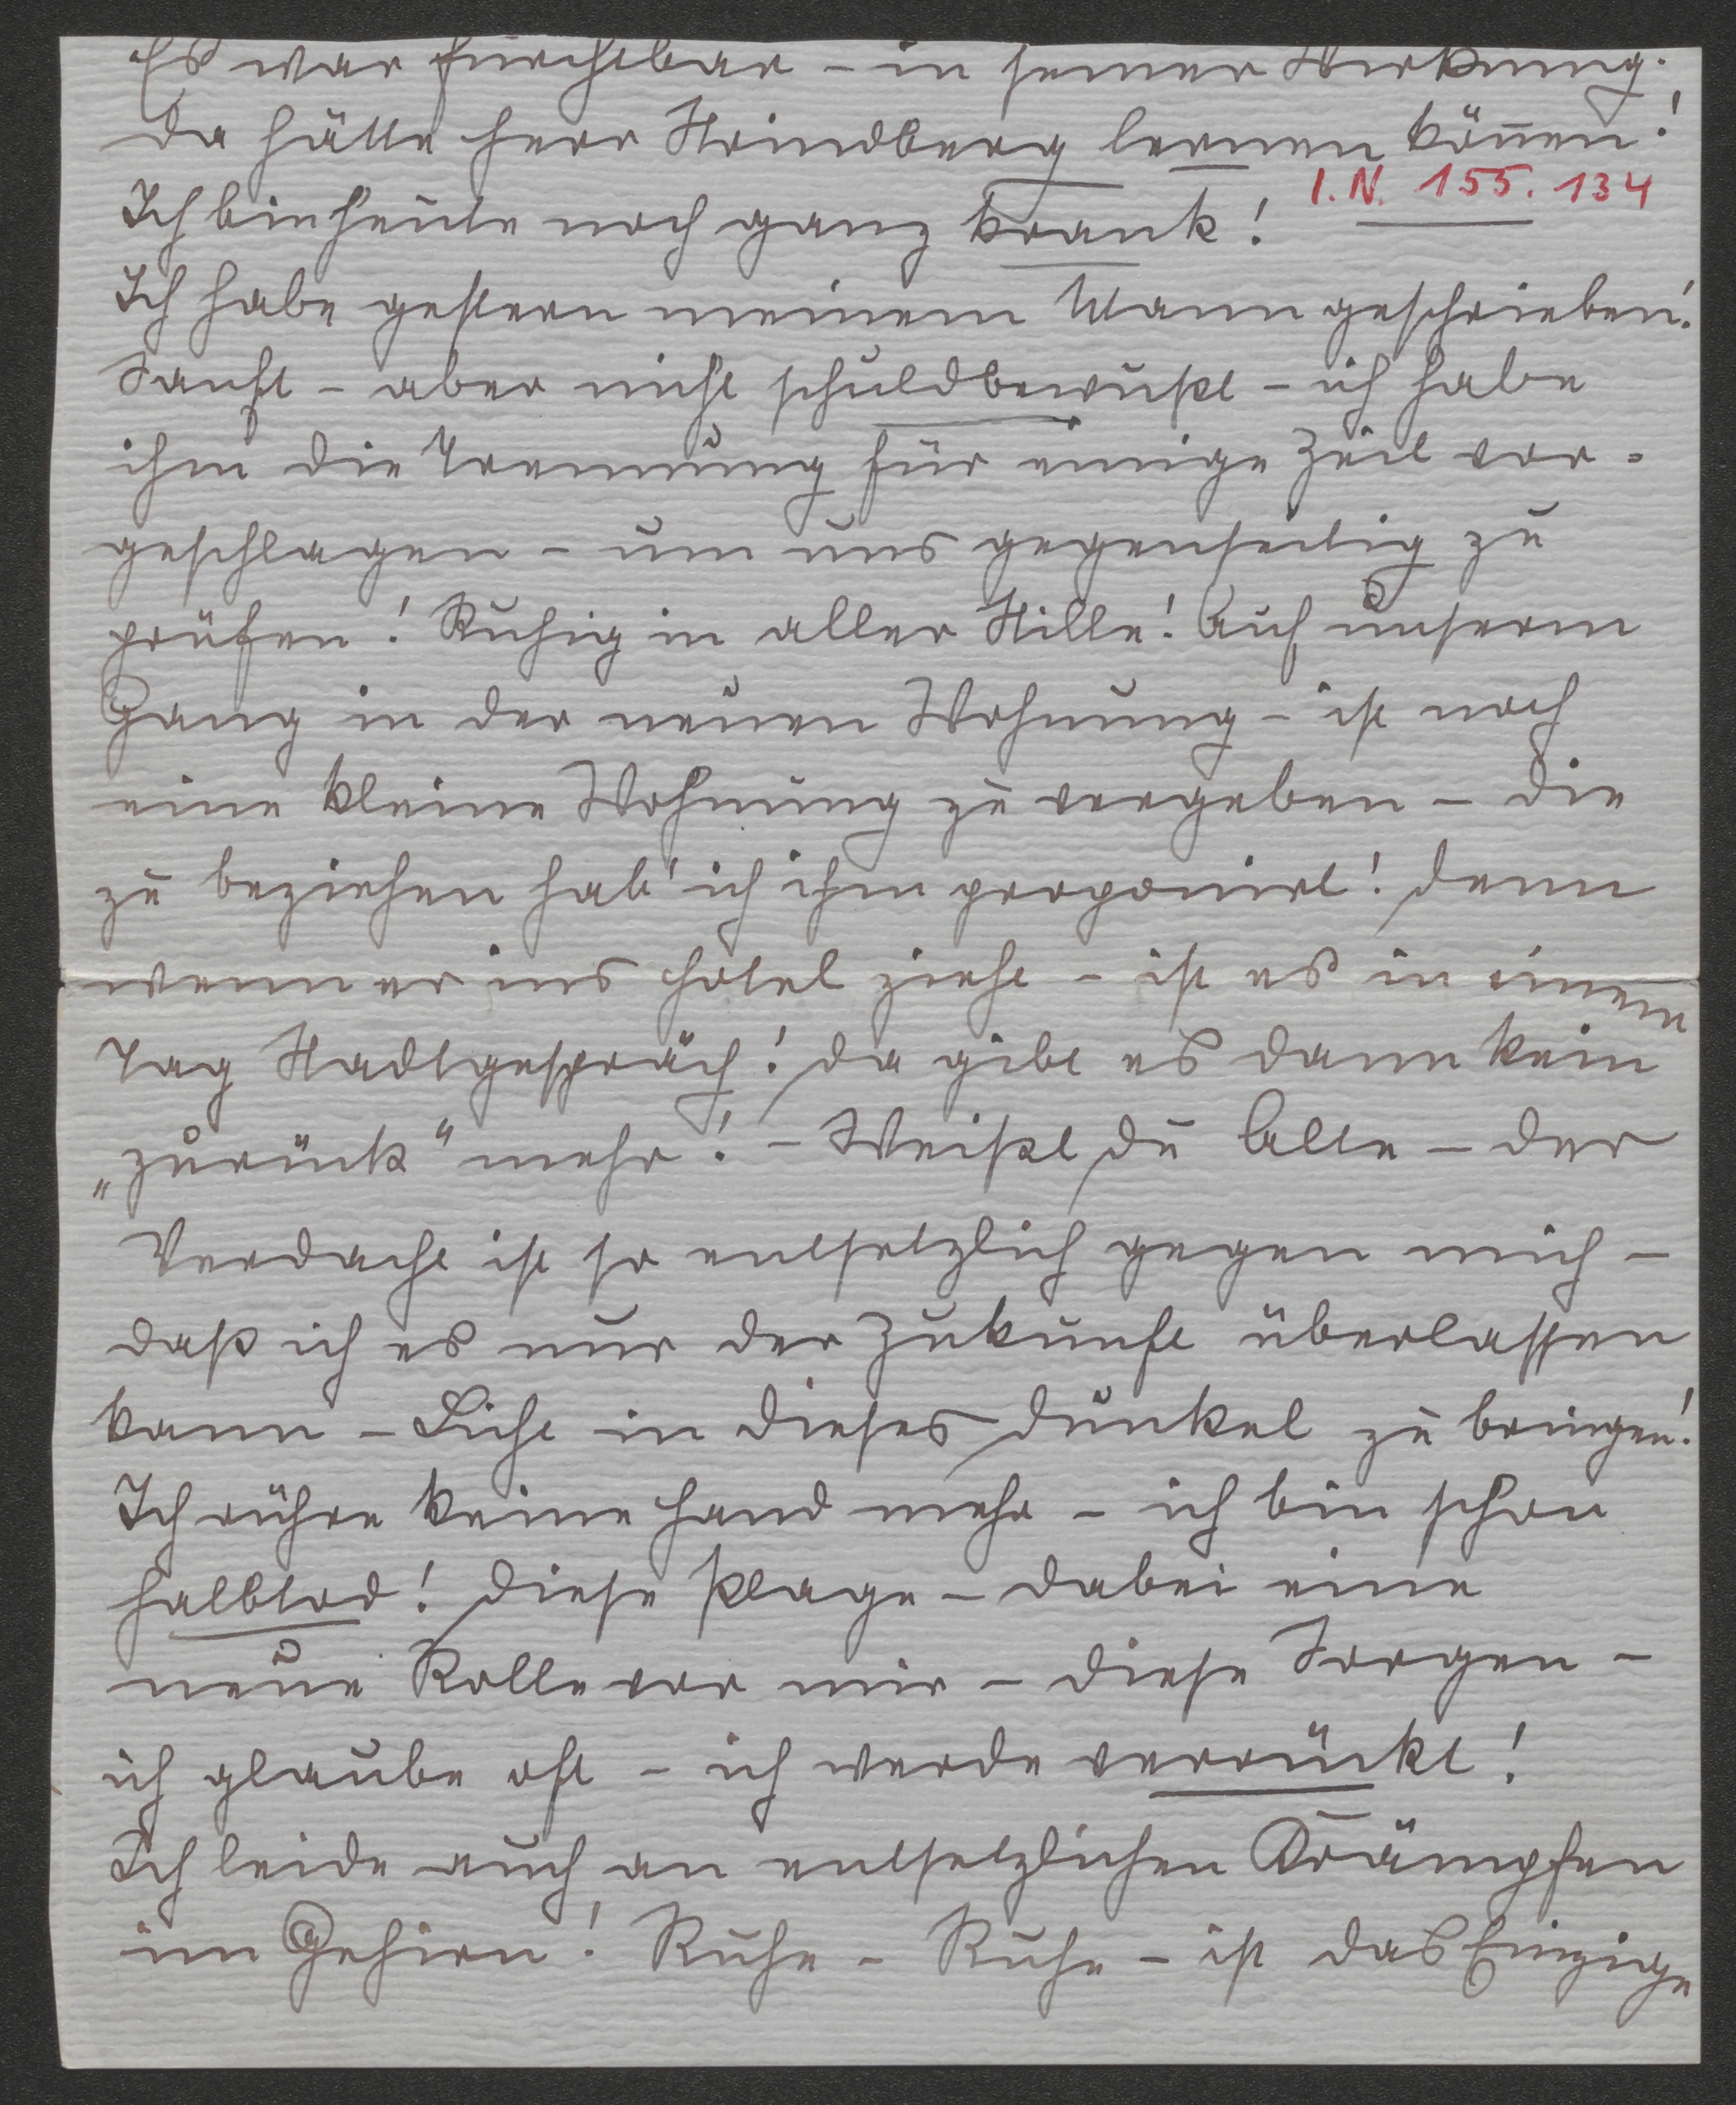 Es war furchtbar – in seiner Wirkung.
Da hätte Herr Strindberg lernen können!
I. N. 155. 134
Ich bin heute noch ganz krank!
Ich habe gestern meinem Mann geschrieben!
Sanft – aber nicht schuldbewußt – ich habe
ihm die Trennung für einige Zeit vor-
geschlagen – um uns gegenseitig zu
prüfen! Ruhig in aller Stille! Auf unserm
Gang in der neuen Wohnung – ist noch
eine kleine Wohnung zu vergeben – die
zu beziehen hab' ich ihm proponirt! Denn
wenn er ins Hotel zieht – ist es in einem
Tag Stadtgespräch! Da gibt es dann kein
„zurück“ mehr! – Weißt Du Alte – der
Verdacht ist so entsetzlich gegen mich –
daß ich es nur der Zukunft überlassen
kann – Licht in dieses Dunkel zu bringen!
Ich rühre keine Hand mehr – ich bin schon
halbtod! Diese Plage – dabei eine
neue Rolle vor mir – diese Sorgen –
ich glaube oft – ich werde verrückt!
Ich leide auch an entsetzlichen Krämpfen
im Gehirn! Ruhe – Ruhe – ist das Einzige